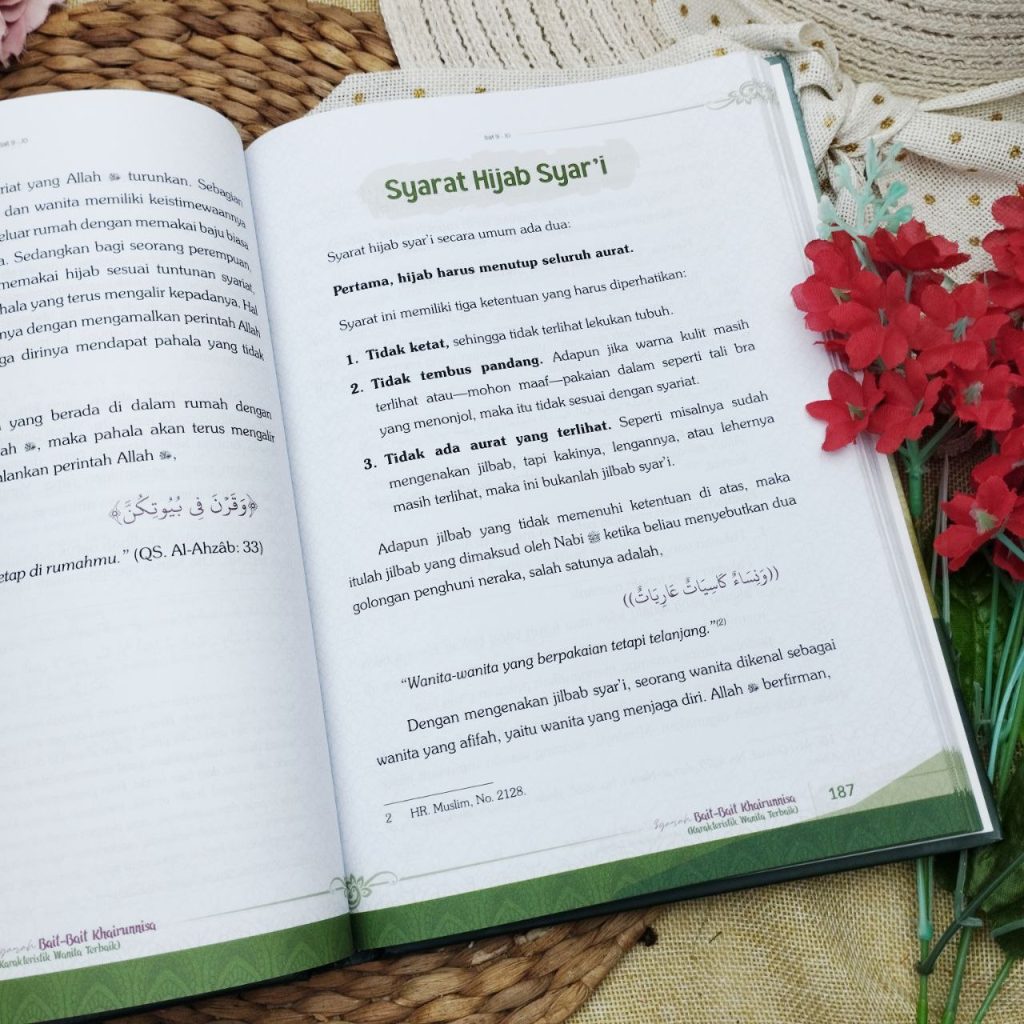 Bait 9 - 10
riat yang Allah ﷻ turunkan. Sebagian
dan wanita memiliki keistimewaannya
eluar rumah dengan memakai baju biasa
a. Sedangkan bagi seorang perempuan
memakai hijab sesuai tuntunan syariat,
hala yang terus mengalir kepadanya. Hal
nya dengan mengamalkan perintah Allah
ga dirinya mendapat pahala yang tidak
yang berada di dalam rumah dengan
ah ﷻ, maka pahala akan terus mengalir
alankan perintah Allah ﷻ,
﴿وَقَرْنَ فِي بُيُوتِكُنَّ﴾
etap di rumahmu." (QS. Al-Ahzâb: 33)
Syarah Bait-Bait Khairunnisa
(Karakteristik Wanita Terbaik)
Bait 9 - 10
Syarat Hijab Syar'i
Syarat hijab syar'i secara umum ada dua:
Pertama, hijab harus menutup seluruh aurat.
Syarat ini memiliki tiga ketentuan yang harus diperhatikan:
1. Tidak ketat, sehingga tidak terlihat lekukan tubuh.
2. Tidak tembus pandang. Adapun jika warna kulit masih
terlihat atau—mohon maaf—pakaian dalam seperti tali bra
yang menonjol, maka itu tidak sesuai dengan syariat.
3. Tidak ada aurat yang terlihat. Seperti misalnya sudah
mengenakan jilbab, tapi kakinya, lengannya, atau lehernya
masih terlihat, maka ini bukanlah jilbab syar'i.
Adapun jilbab yang tidak memenuhi ketentuan di atas, maka
itulah jilbab yang dimaksud oleh Nabi ﷺ ketika beliau menyebutkan dua
golongan penghuni neraka, salah satunya adalah,
((وَنِسَاءٌ كَاسِيَاتٌ عَارِيَاتٌ))
"Wanita-wanita yang berpakaian tetapi telanjang."(2)
Dengan mengenakan jilbab syar'i, seorang wanita dikenal sebagai
wanita yang afifah, yaitu wanita yang menjaga diri. Allah ﷻ berfirman,
2 HR. Muslim, No. 2128.
Syarah Bait-Bait Khairunnisa
(Karakteristik Wanita Terbaik)
187